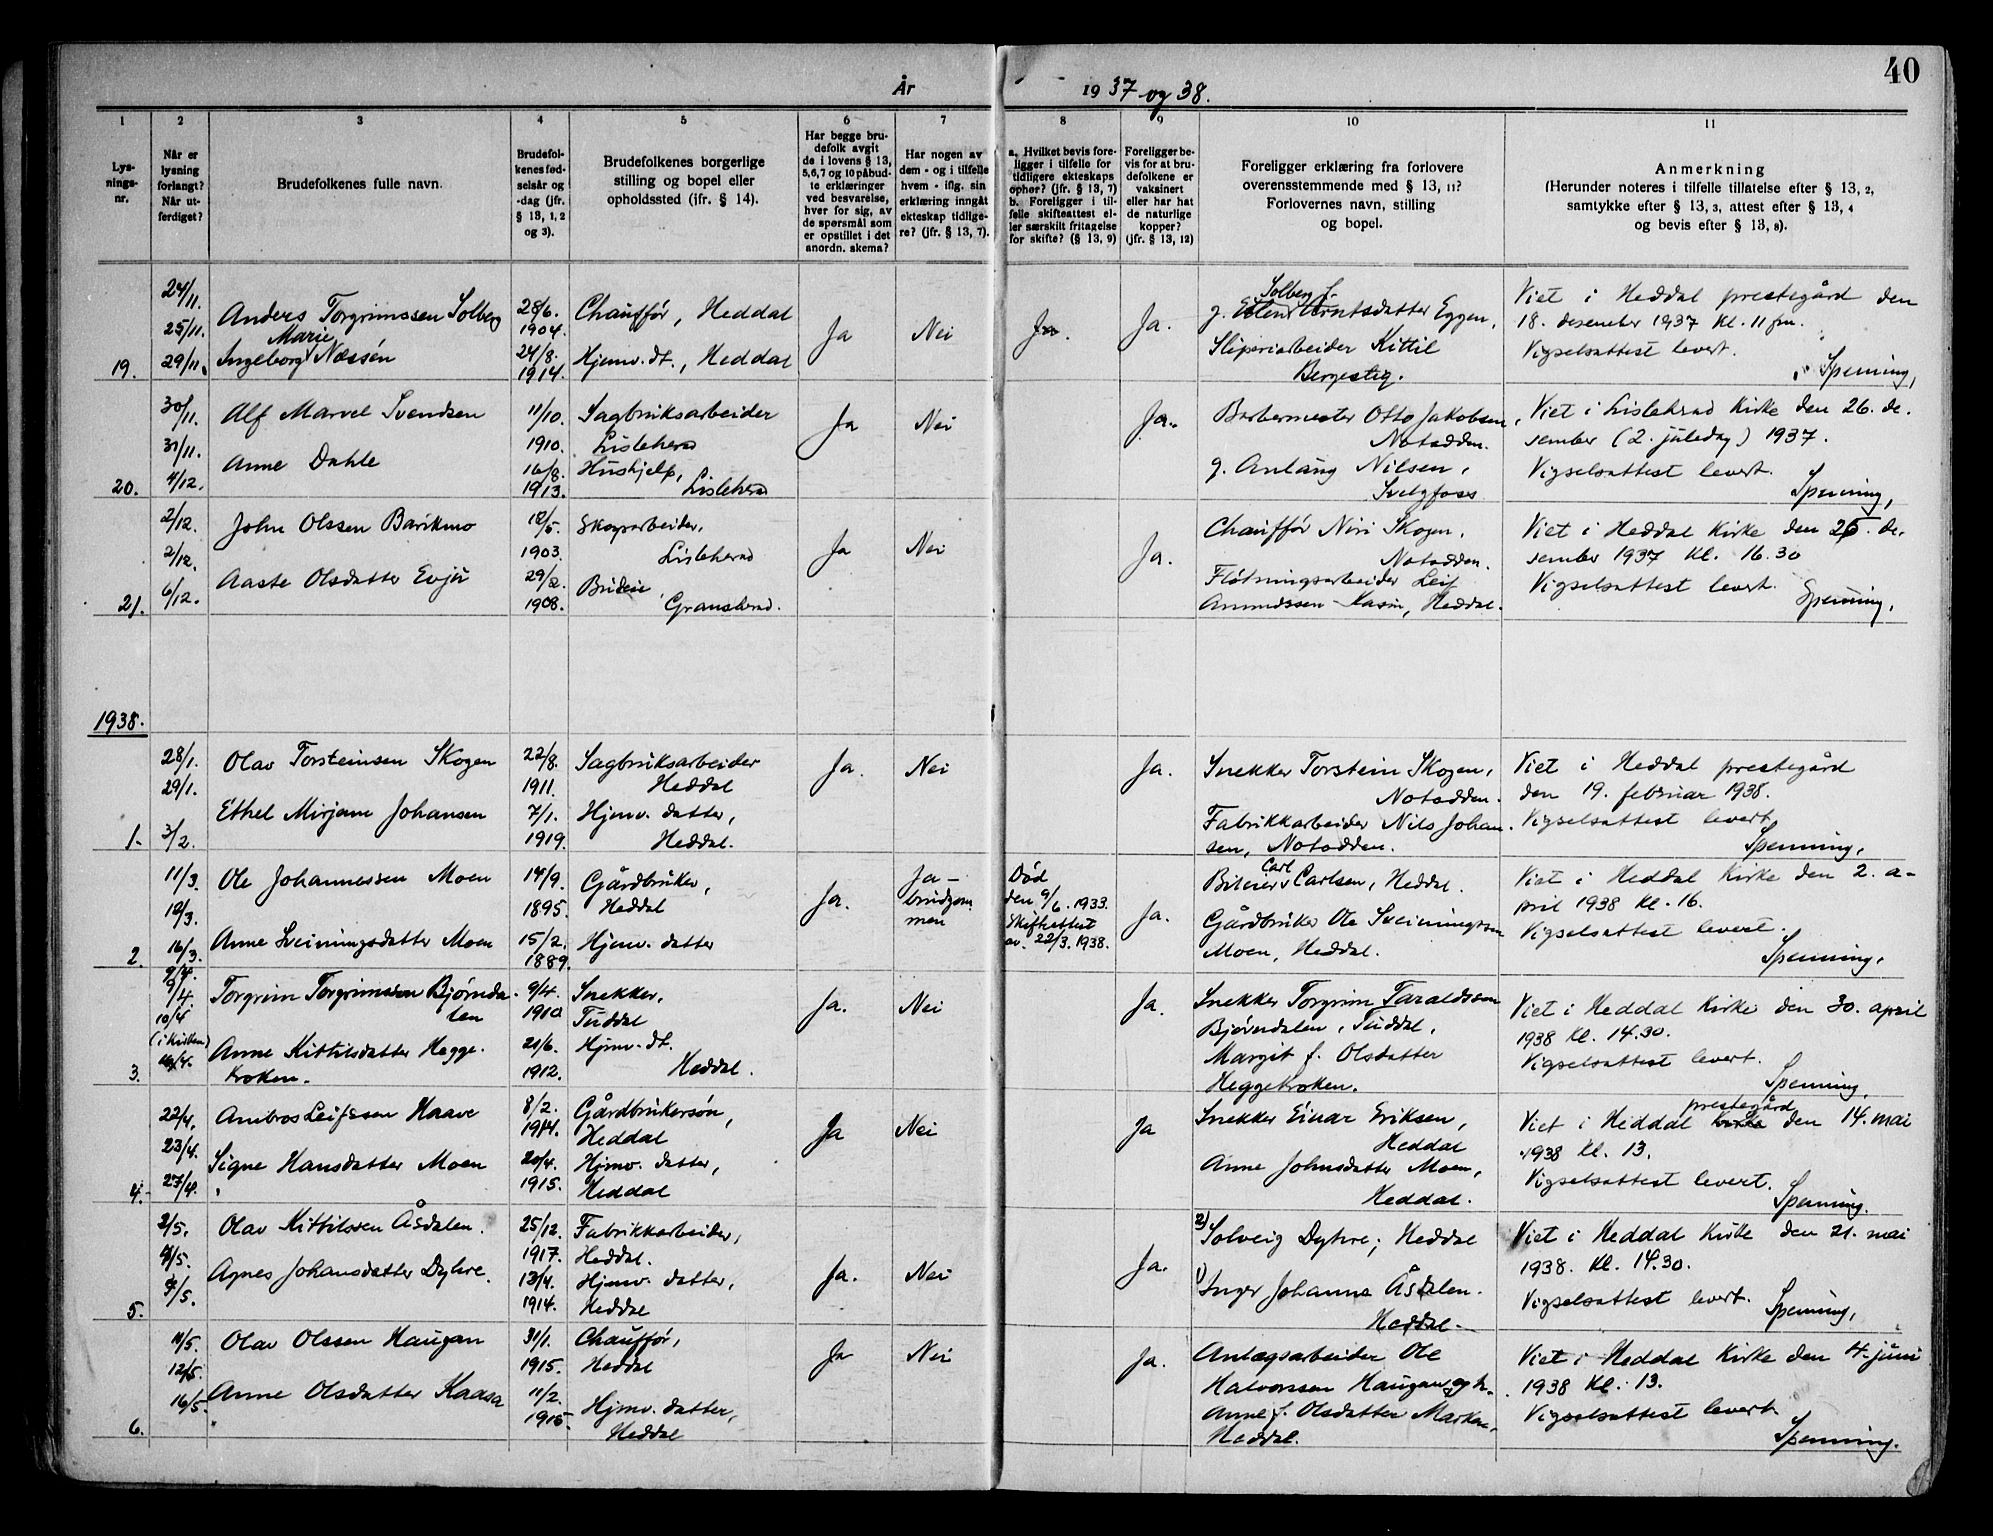 40
År 1937 og 38.
1 2 3 4 5 6 7 8 9 10 11
Lys-
nings-
nr.
Når er
lysning
forlangt?
Når ut-
ferdiget?
Brudefolkenes fulle navn.
Brudefol-
kenes fød-
selsår og
-dag (jfr.
§ 13, 1, 2
og 3).
Brudefolkenes borgerlige
stilling og bopel eller
opholdssted (jfr. § 14).
Har begge bru-
defolk avgit
de i lovens § 13,
5,6,7 og 10 påbud-
te erklæringer
ved besvarelse,
hver for sig, av
de spørsmål som
er opstillet i det
anordn. skema?
Har nogen av
dem - og i tilfelle
hvem - iflg. sin
erklæring inngåt
ekteskap tidlige-
re? (jfr. § 13, 7).
a. Hvilket bevis fore-
ligger i tilfelle for
tidligere ekteskaps
ophør? (jfr. § 13, 7)
b. Foreligger i til-
felle skifteattest el-
ler særskilt fritagelse
for skifte? (§ 13, 9)
Foreligger be-
vis for at bru-
defolkene er
vaksinert
eller har hat
de naturlige
kopper?
(jfr. § 13, 12)
Foreligger erklæring fra forlovere
overensstemmende med § 13, 11?
Forlovernes navn, stilling
og bopel.
Anmerkning
(Herunder noteres i tilfelle tillatelse efter § 13, 2,
samtykke efter § 13, 3, attest efter § 13, 4
og bevis efter § 13, 8).
19.
24/11.
25/11.
29/11.
Anders Torgrimssen Solberg
Marie
Ingeborg Næssén
28/6.
1904.
24/8.
1914.
Chauffør, Heddal
Hjemv. dt., Heddal
Ja
Nei
Ja.
Solberg f.
g. Arntsdatter Eggen,
Sliperiarbeider Kittil
Bergestig.
Viet i Heddal prestegård den
18. desember 1937 kl. 11 fm.
Vigselsattest levert.
Spenning,
20.
30/11.
31/11.
4/12.
Alf Marvel Svendsen
Anne Dahle
11/10.
1910.
16/8.
1913.
Sagbruksarbeider
Lisleherad
Hushjelp,
Lisleherad
Ja
Nei
Ja.
Barbermester Otto Jakobsen,
Notodden.
g. Anlaug Nilsen,
Svelgfoss
Viet i Lisleherad kirke den 26. de-
sember (2. juledag) 1937.
Vigselsattest levert.
Spenning,
21.
2/12.
2/12.
6/12.
John Olssen Barikmo
Aaste Olsdatter Evju
12/5.
1903.
29/2.
1908.
Skogsarbeider,
Lisleherad
Budeie,
Gransherad.
Ja
Nei
Ja.
Chauffør Niri Skogen,
Notodden.
Fløtningsarbeider Leif
Amundssen Kasin, Heddal.
Viet i Heddal kirke den 25. de-
sember 1937 kl. 16.30
Vigselsattest levert.
Spenning,
1938.
1.
28/1.
29/1.
3/2.
Olav Torsteinsen Skogen
Ethel Mirjam Johansen
22/8.
1911.
7/1.
1919.
Sagbruksarbeider
Heddal
Hjemv. datter,
Heddal.
Ja.
Nei
Ja.
Snekker Torstein Skogen,
Notodden.
Fabrikkarbeider Nils Johan-
sen, Notodden.
Viet i Heddal prestegård
den 19. februar 1938.
Vigselsattest levert
Spenning,
2.
11/3.
12/3.
16/3.
Ole Johannessen Moen
Anne Sveinungsdatter Moen
14/9.
1895.
15/2.
1889.
Gårdbruker,
Heddal
Hjemv. datter
Ja.
Ja -
brudgom-
men
Død
den 9/6. 1933.
Skifteattest
av. 22/3. 1938.
Ja.
Carl
Bileier Carlsen, Heddal.
Gårdbruker Ole Sveinungsen
Moen, Heddal.
Viet i Heddal kirke den 2. a-
pril 1938 kl. 16.
Vigselsattest levert.
Spenning,
3.
9/4.
9/4.
10/4
(i kirken)
Torgrim Torgrimssen Bjørnda-
len
Anne Kittilsdatter Hegge-
kroken.
9/4.
1910
21/6.
1912.
Snekker,
Tuddal
Hjmv. dt.
Heddal.
Ja.
Nei
Ja.
Snekker Torgrim Taraldssen
Bjørndalen, Tuddal,
Margit f. Olsdatter
Heggekroken.
Viet i Heddal kirke den 30. april
1938 kl. 14.30.
Vigselsattest levert.
Spenning,
4.
22/4.
23/4.
27/4.
Ambros Leifssen Haave
Signe Hansdatter Moen
8/2.
1914.
20/4.
1915.
Gårdbrukersøn,
Heddal
Hjmv. datter,
Heddal
Ja
Nei
Ja
Snekker Einar Eriksen,
Heddal
Anne Johnsdatter Moen,
Heddal.
prestegård
Viet i Heddal kirke den 14. mai
1938 kl. 13.
Vigselsattest levert.
Spenning.
5.
2/5.
/5.
/5.
Olav Kittilssen Åsdalen.
Agnes Johansdatter Dyhre.
25/12.
1917.
13/4.
1914.
Fabrikkarbeider,
Heddal.
Hjmv. datter,
Heddal
Ja.
Nei
Ja.
2) Solveig Dyhre, Heddal
1) Inger Johanne Åsdalen.
Heddal.
Viet i Heddal kirke den 21. mai
1938. kl. 14.30.
Vigselsattest levert.
Spenning,
6.
11/5.
12/5.
16/5.
Olav Olssen Haugan
Anne Olsdatter Kaasa
31/1.
1915.
11/2.
1915.
Chauffør,
Heddal
Hjmv. datter,
Heddal
Ja
Nei
Ja.
Anlægsarbeider Ole
Halvorssen Haugan og h.
Anne f. Olsdatter
Heddal.
Viet i Heddal kirke den 4. juni
1938 kl. 13.
Vigselsattest levert.
Spenning.